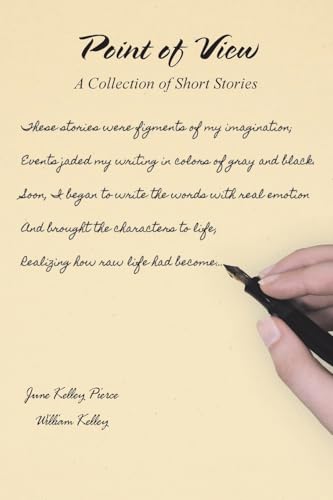 Point of View
A Collection of Short Stories
These stories were figments of my imagination;
Events jaded my writing in colors of gray and black.
Soon, I began to write the words with real emotion
And brought the characters to life,
Realizing how raw life had become...
June Kelley Pierce
William Kelley